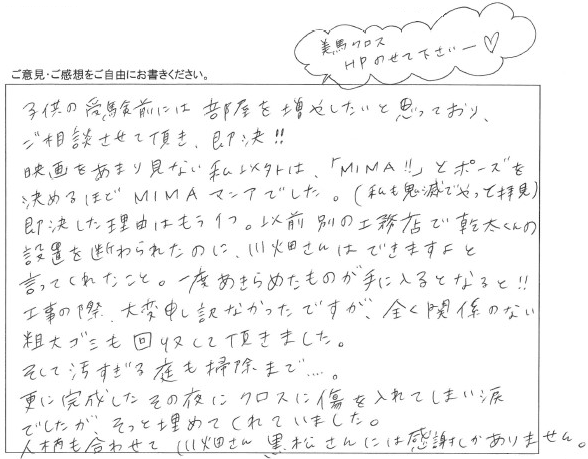 美馬クロス
HPのせて下さいー♡
ご意見・ご感想をご自由にお書きください。
子供の受験前には部屋を増やしたいと思っており、
ご相談させて頂き、即決!!
映画をあまり見ない私以外は、「MIMA!!」とポーズを
決めるほどMIMAマニアでした。(私も鬼滅でやっと拝見)
即決した理由はもう1つ。以前別の工務店で乾太くんの
設置を断わられたのに、川畑さんはできますよと
言ってくれたこと。一度あきらめたものが手に入るとなると!!
工事の際、大変申し訳なかったですが、全く関係のない
粗大ゴミも回収して頂きました。
そして汚すぎる庭も掃除まで…。
更に完成したその夜にクロスに傷を入れてしまい涙
でしたが、そっと埋めてくれていました。
人柄も合わせて川畑さん黒松さんには感謝しかありません。